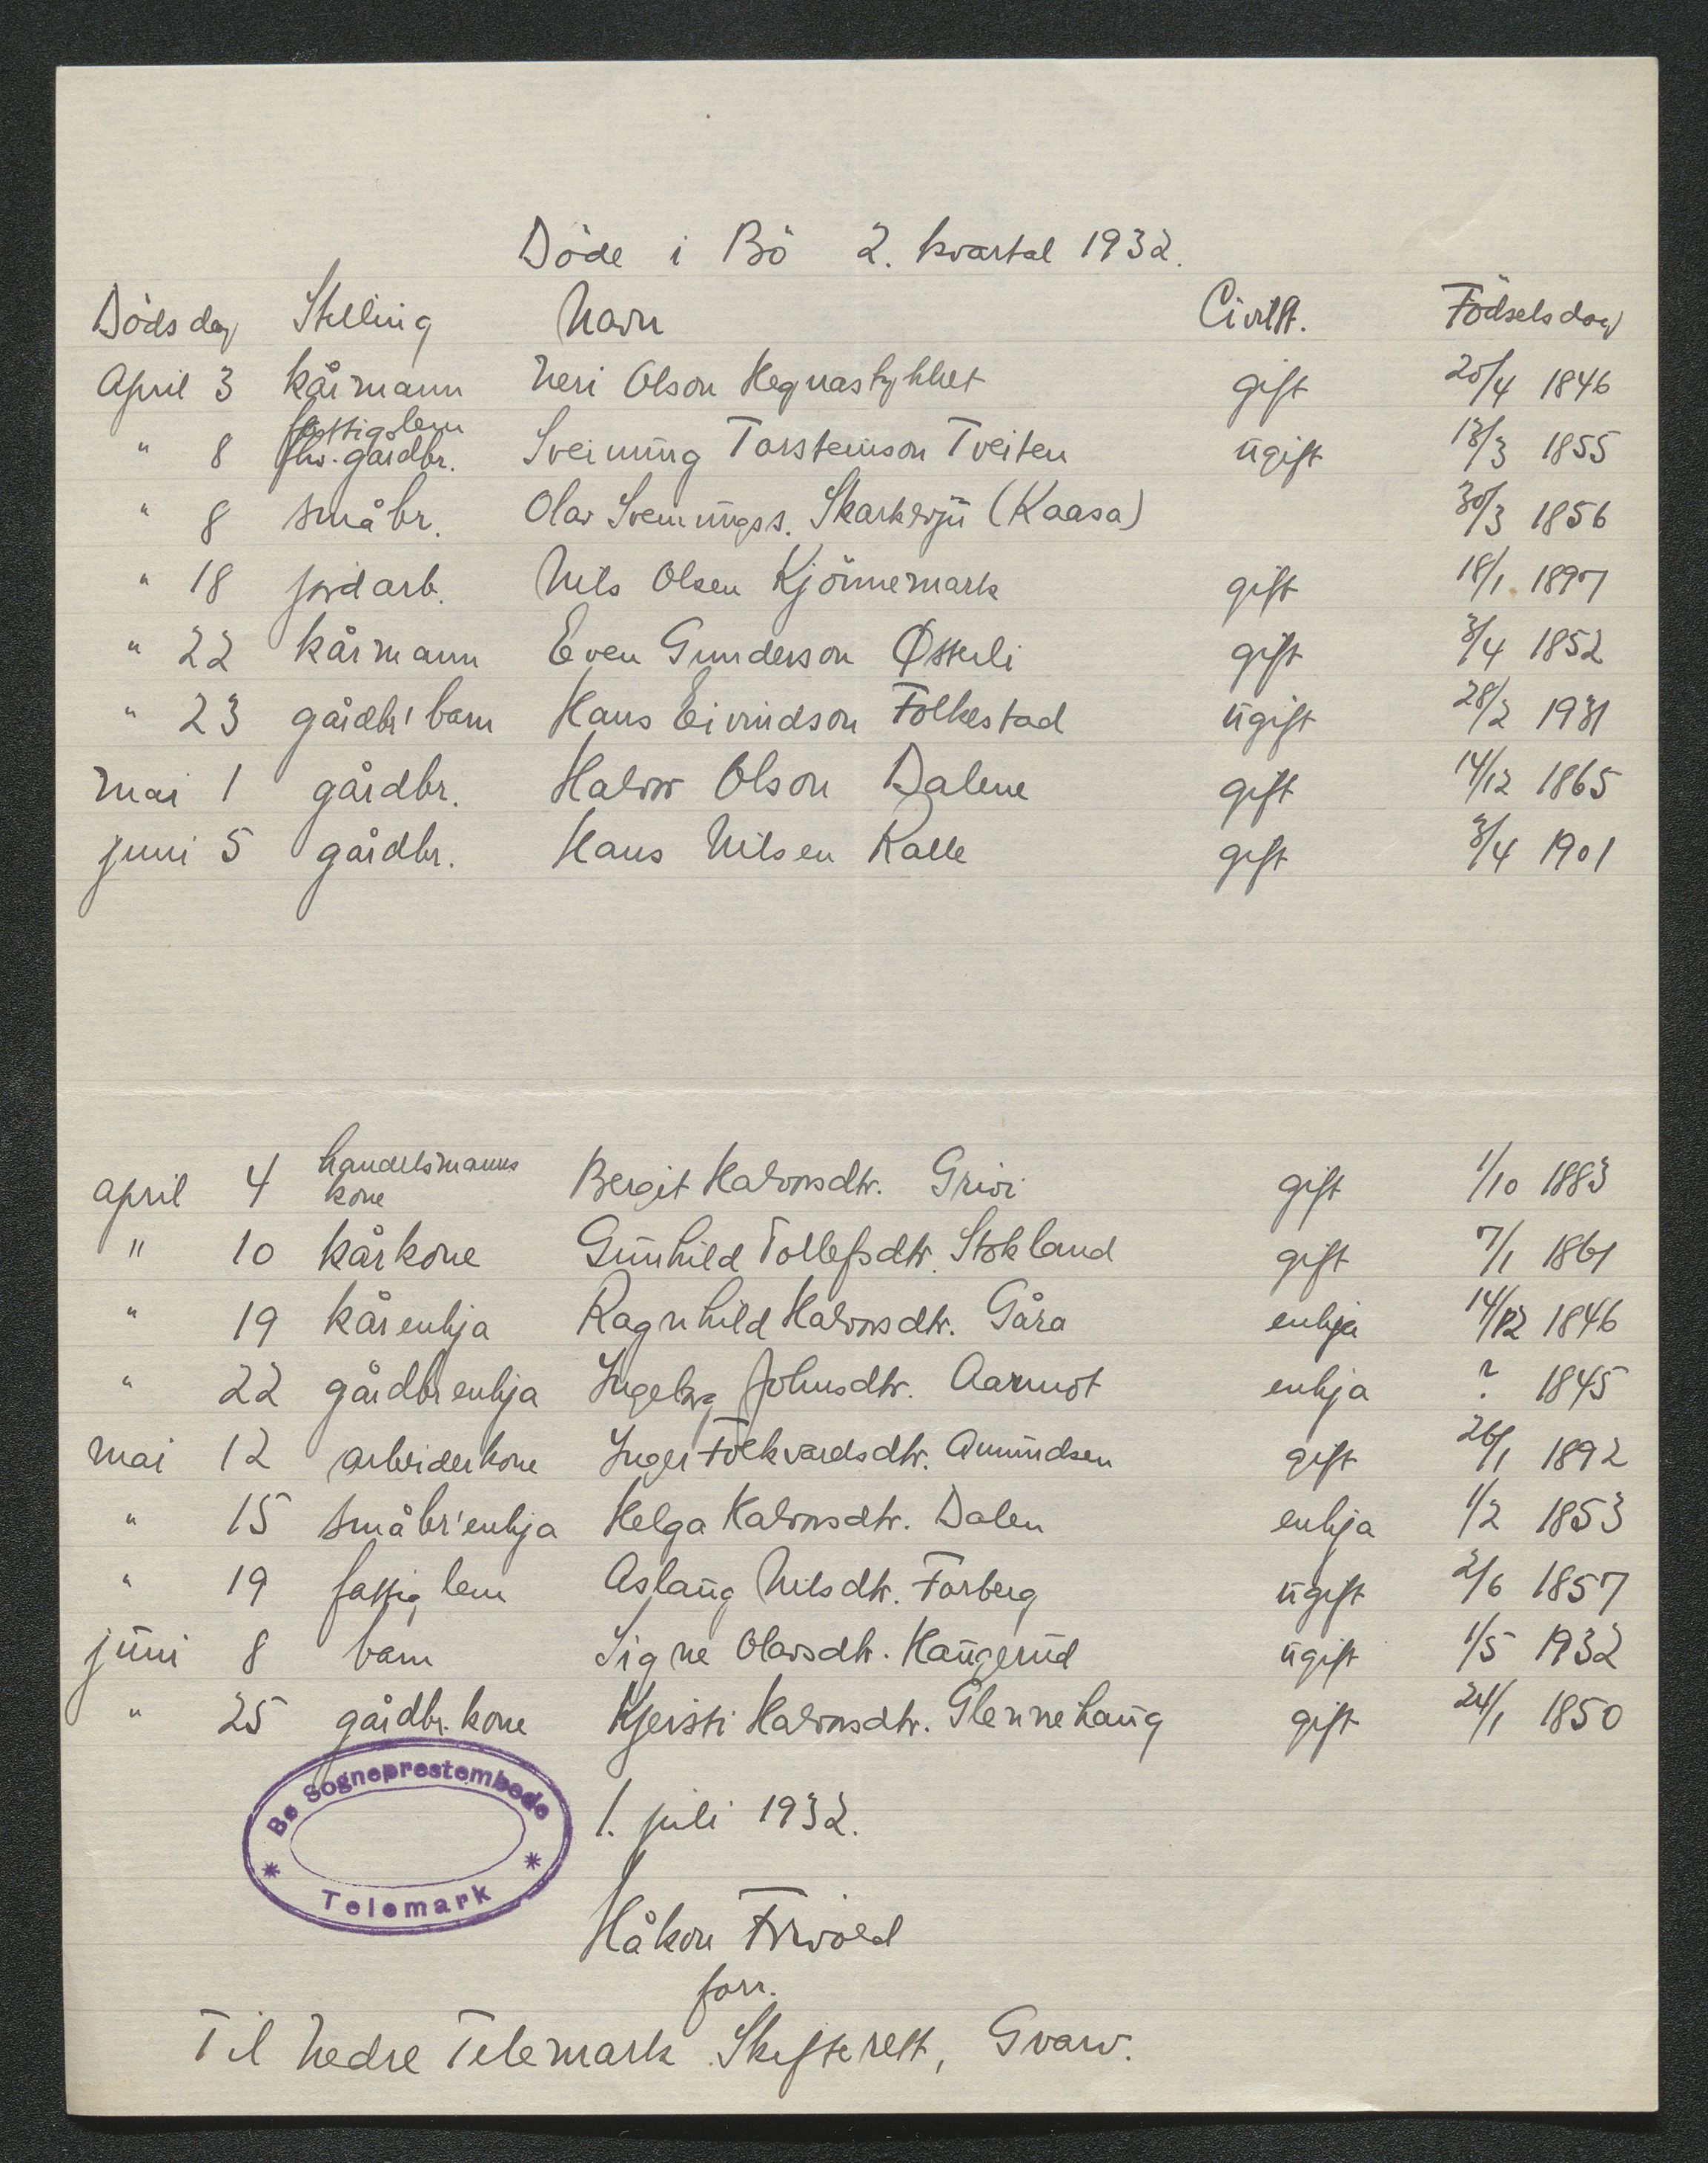 Döde i Bö 2. kvartal 1932.
Dödsdag Stelling Navn Civilst. Födselsdag
April 3 kårmann Neri Olson Hegnastykket gift 20/4 1846
fattiglem
" 8 fhv. gårdbr. Sveinung Torsteinson Tveiten ugift 13/3 1855
" 8 småbr. Olav Sveinungss. (Kaasa) 30/3 1856
" 18 jordarb. Nils Olsen Kjönnemark gift 18/1 1897
" 22 kårmann Even Gunderson Østerli gift 3/4 1852
" 23 gårdbr' barn Hans Eivindson Folkestad ugift 28/2 1931
mai 1 gårdbr. Halvor Olson Dalene gift 14/12 1865
juni 5 gårdbr. Hans Nilsen Kalle gift 3/4 1901
handelsmanns
april 4 kone Bergit Halvorsdtr. Grivi gift 1/10 1883
" 10 kårkone Gunhild Tollefsdtr. Stokland gift 7/1 1861
" 19 kårenkja Ragnhild Halvorsdtr. Gåra enkja 14/12 1846
" 22 gårdbrenkja Ingeborg Johnsdtr. Aarmot enkja ? 1845
mai 12 arbeiderkone Inger Folkvardsdtr. Amundsen gift 26/1 1892
" 15 småbr'enkja Helga Halvorsdtr. Dalen enkja 1/2 1853
" 19 fattiglem Aslaug Nilsdtr. Forberg ugift 2/6 1857
juni 8 barn Signe Olavsdtr. Haugerud ugift 1/5 1932
" 25 gårdbr. kone Kjersti Halvorsdtr. Glennehaug gift 24/1 1850
Bø Sogneprestembede
Telemark
1. juli 1932.
Håkon
forr.
Til Nedre Telemark Skifterett, Gvarv.